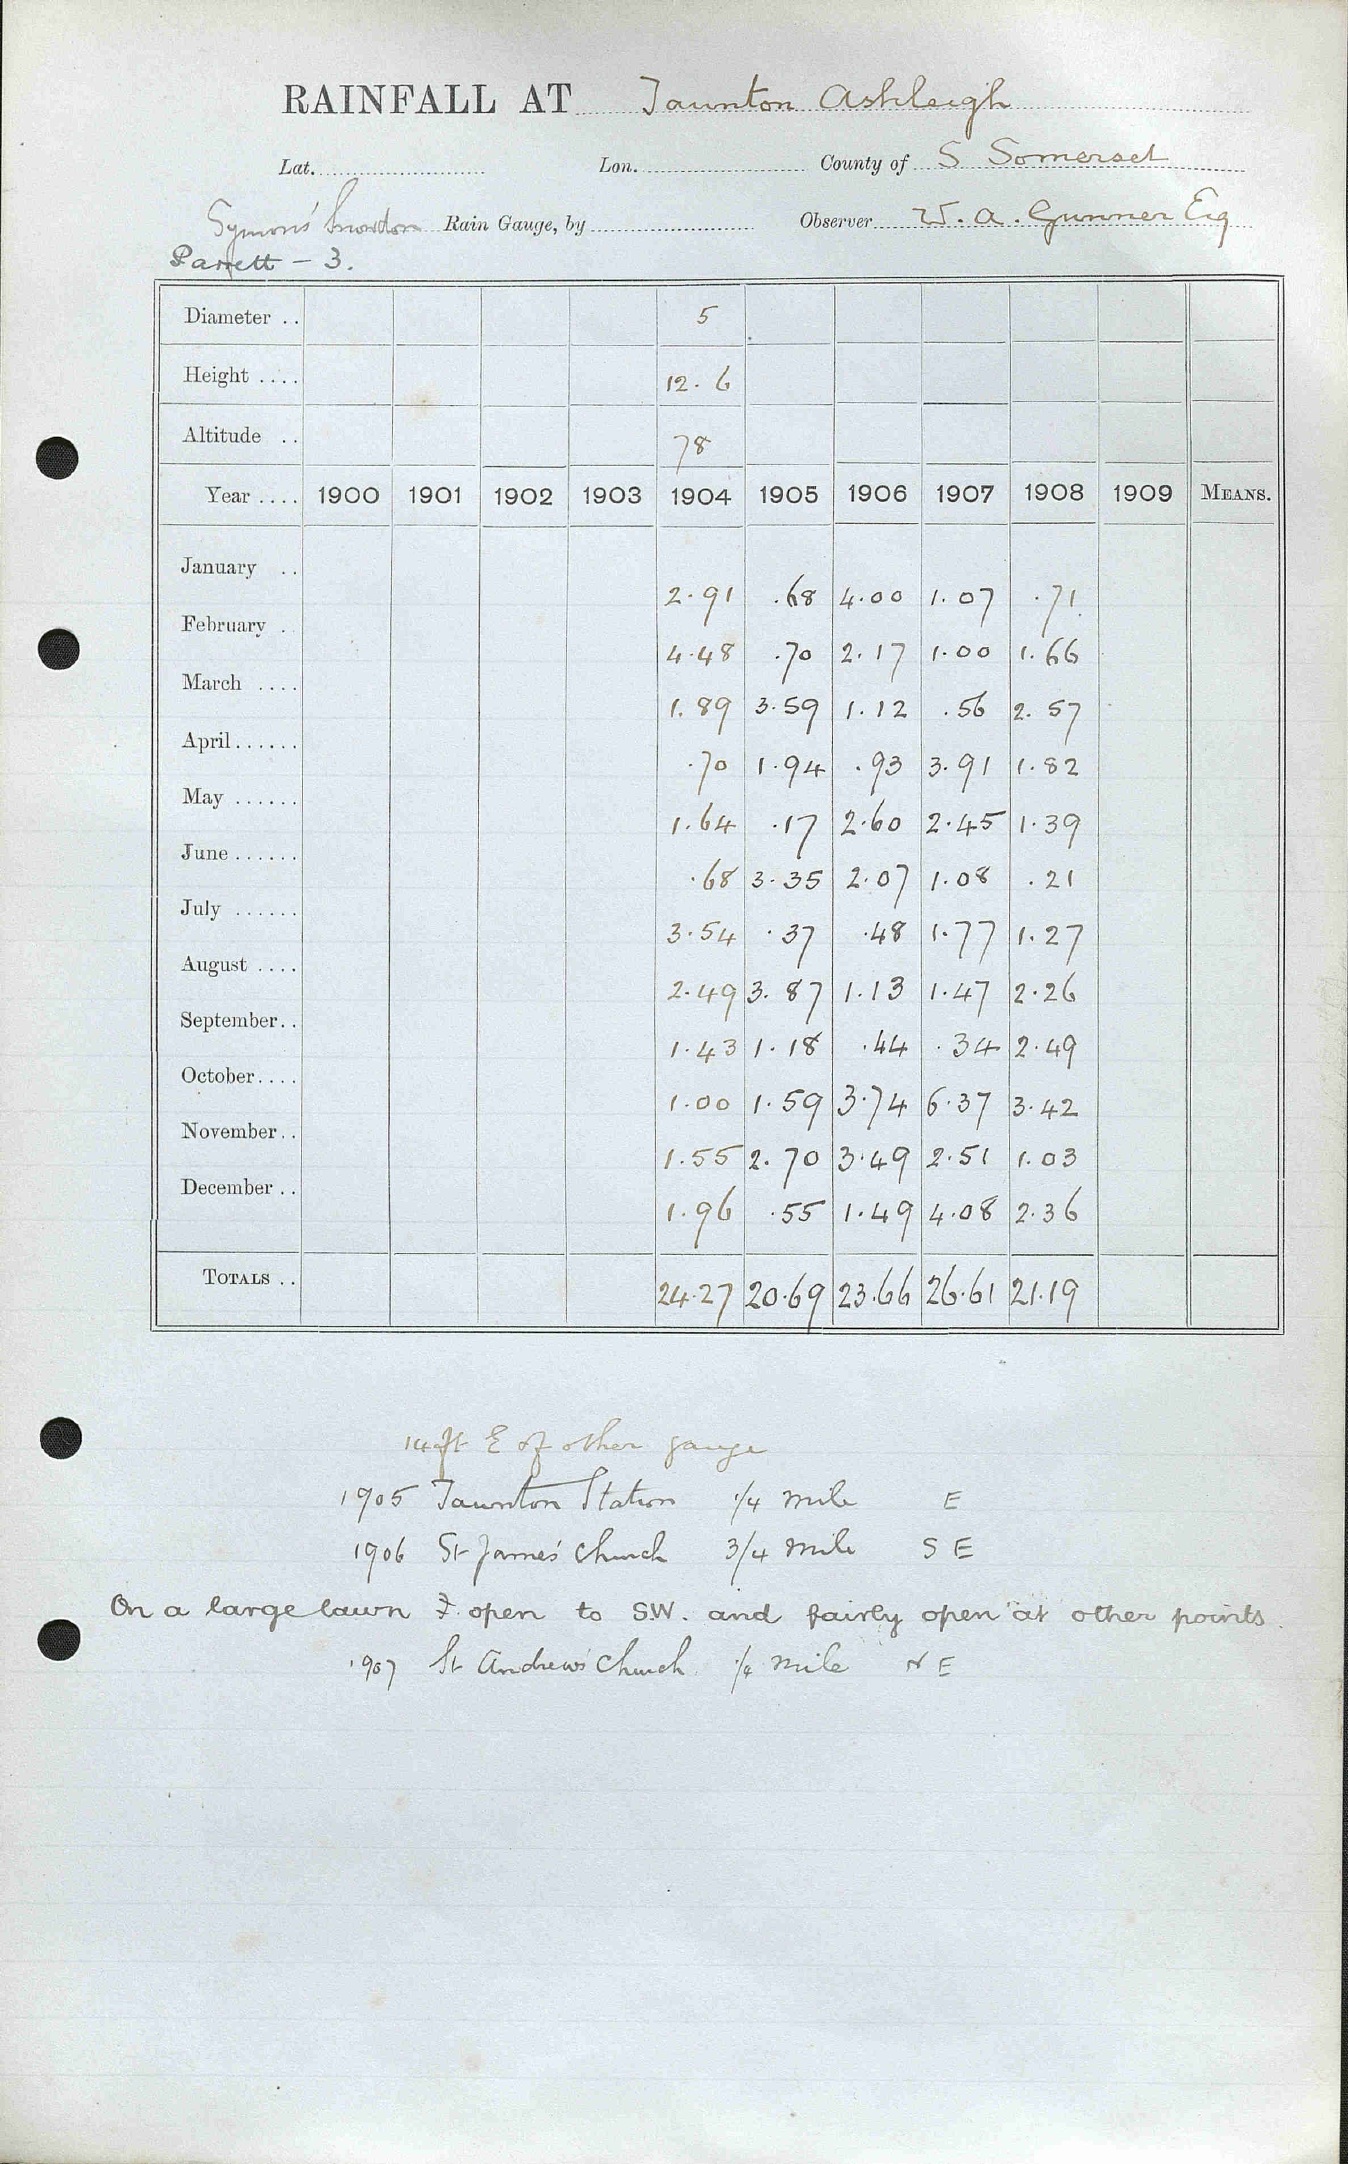 RAINFALL AT Taunton Ashleigh
Lat. Lon. County of S Somerset
Symons' Snowdon Rain Gauge, by Observer W. A. Gunner Esq
Parrett - 3.
Diameter .. 5
Height .... 12. 6
Altitude .. 78
Year .... 1900 1901 1902 1903 1904 1905 1906 1907 1908 1909 MEANS.
January .. 2.91 .68 4.00 1.07 .71
February . 4.48 .70 2.17 1.00 1.66
March .... 1.89 3.59 1.12 .56 2.57
April...... .70 1.94 .93 3.91 1.82
May ...... 1.64 .17 2.60 2.45 1.39
June...... .68 3.35 2.07 1.08 .21
July ...... 3.54 .37 .48 1.77 1.27
August .... 2.49 3.87 1.13 1.47 2.26
September.. 1.43 1.18 .44 .34 2.49
October.... 1.00 1.59 3.74 6.37 3.42
November.. 1.55 2.70 3.49 2.51 1.03
December .. 1.96 .55 1.49 4.08 2.36
TOTALS .. 24.27 20.69 23.66 26.61 21.19
14 ft E of other gauge
1905 Taunton Station 1/4 mile E
1906 St James' Church 3/4 mile S E
On a large lawn open to SW. and fairly open at other points.
1907 St Andrew's Church 1/4 mile N E